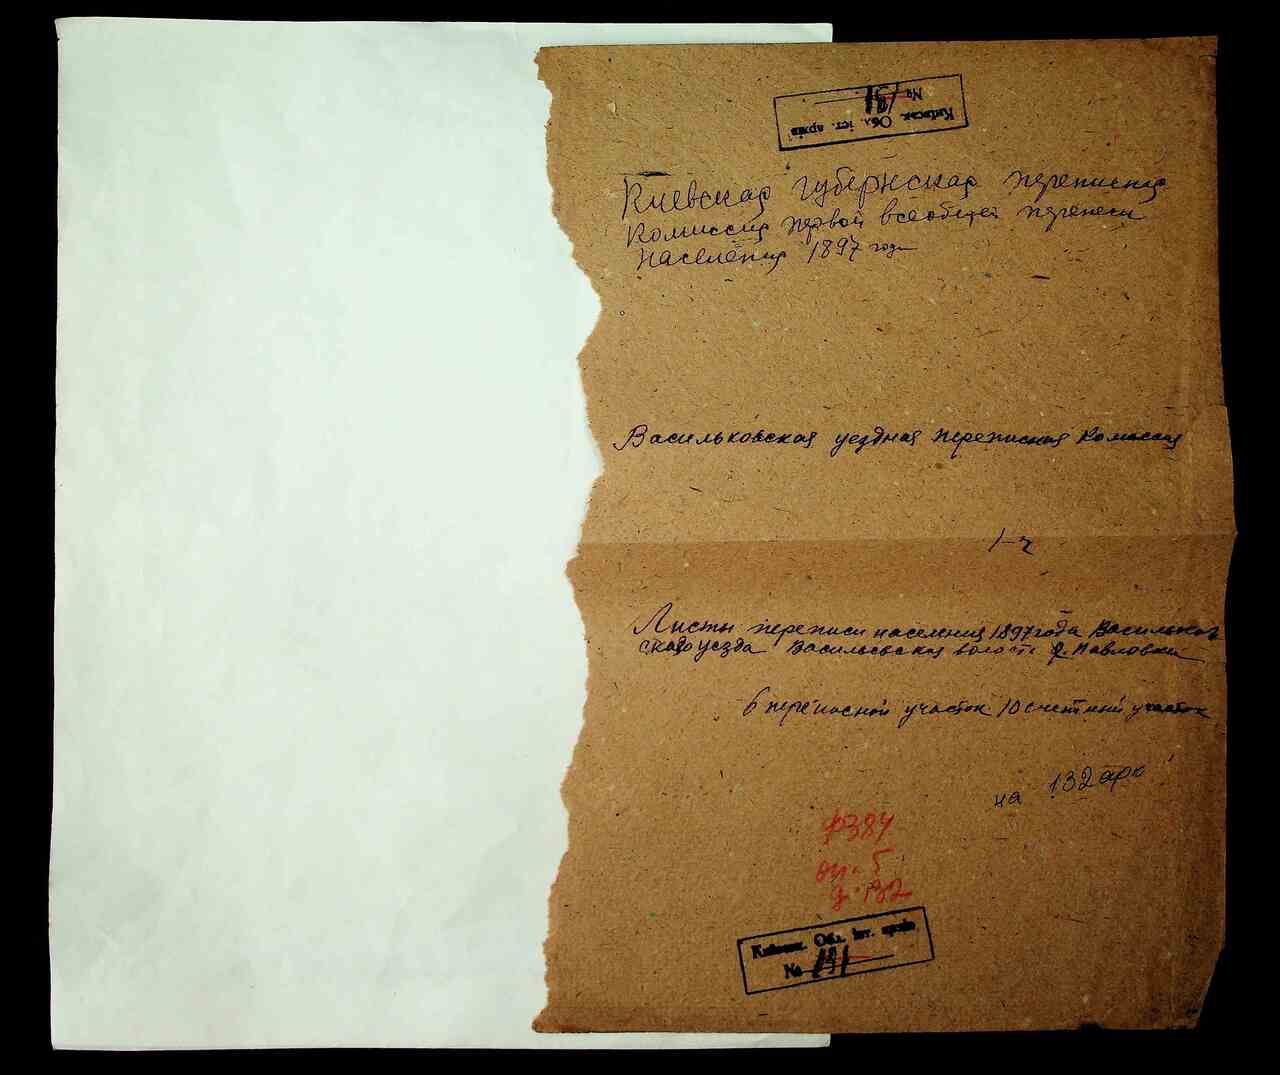 Київськ. Обл. іст. архів
№ 191
Киевская губернская переписная
Комиссия первой всеобщей переписи
населения 1897 года
Васильковская уездная переписная Комиссия
Листы переписи населения 1897 года Васильков
ского уезда Васильевская волость д. Павловка
6 переписной участок 10 счетный участок
на 132 арк
ф 384
оп. 5
д. 132
Київськ. Обл. іст. архів
№ 191